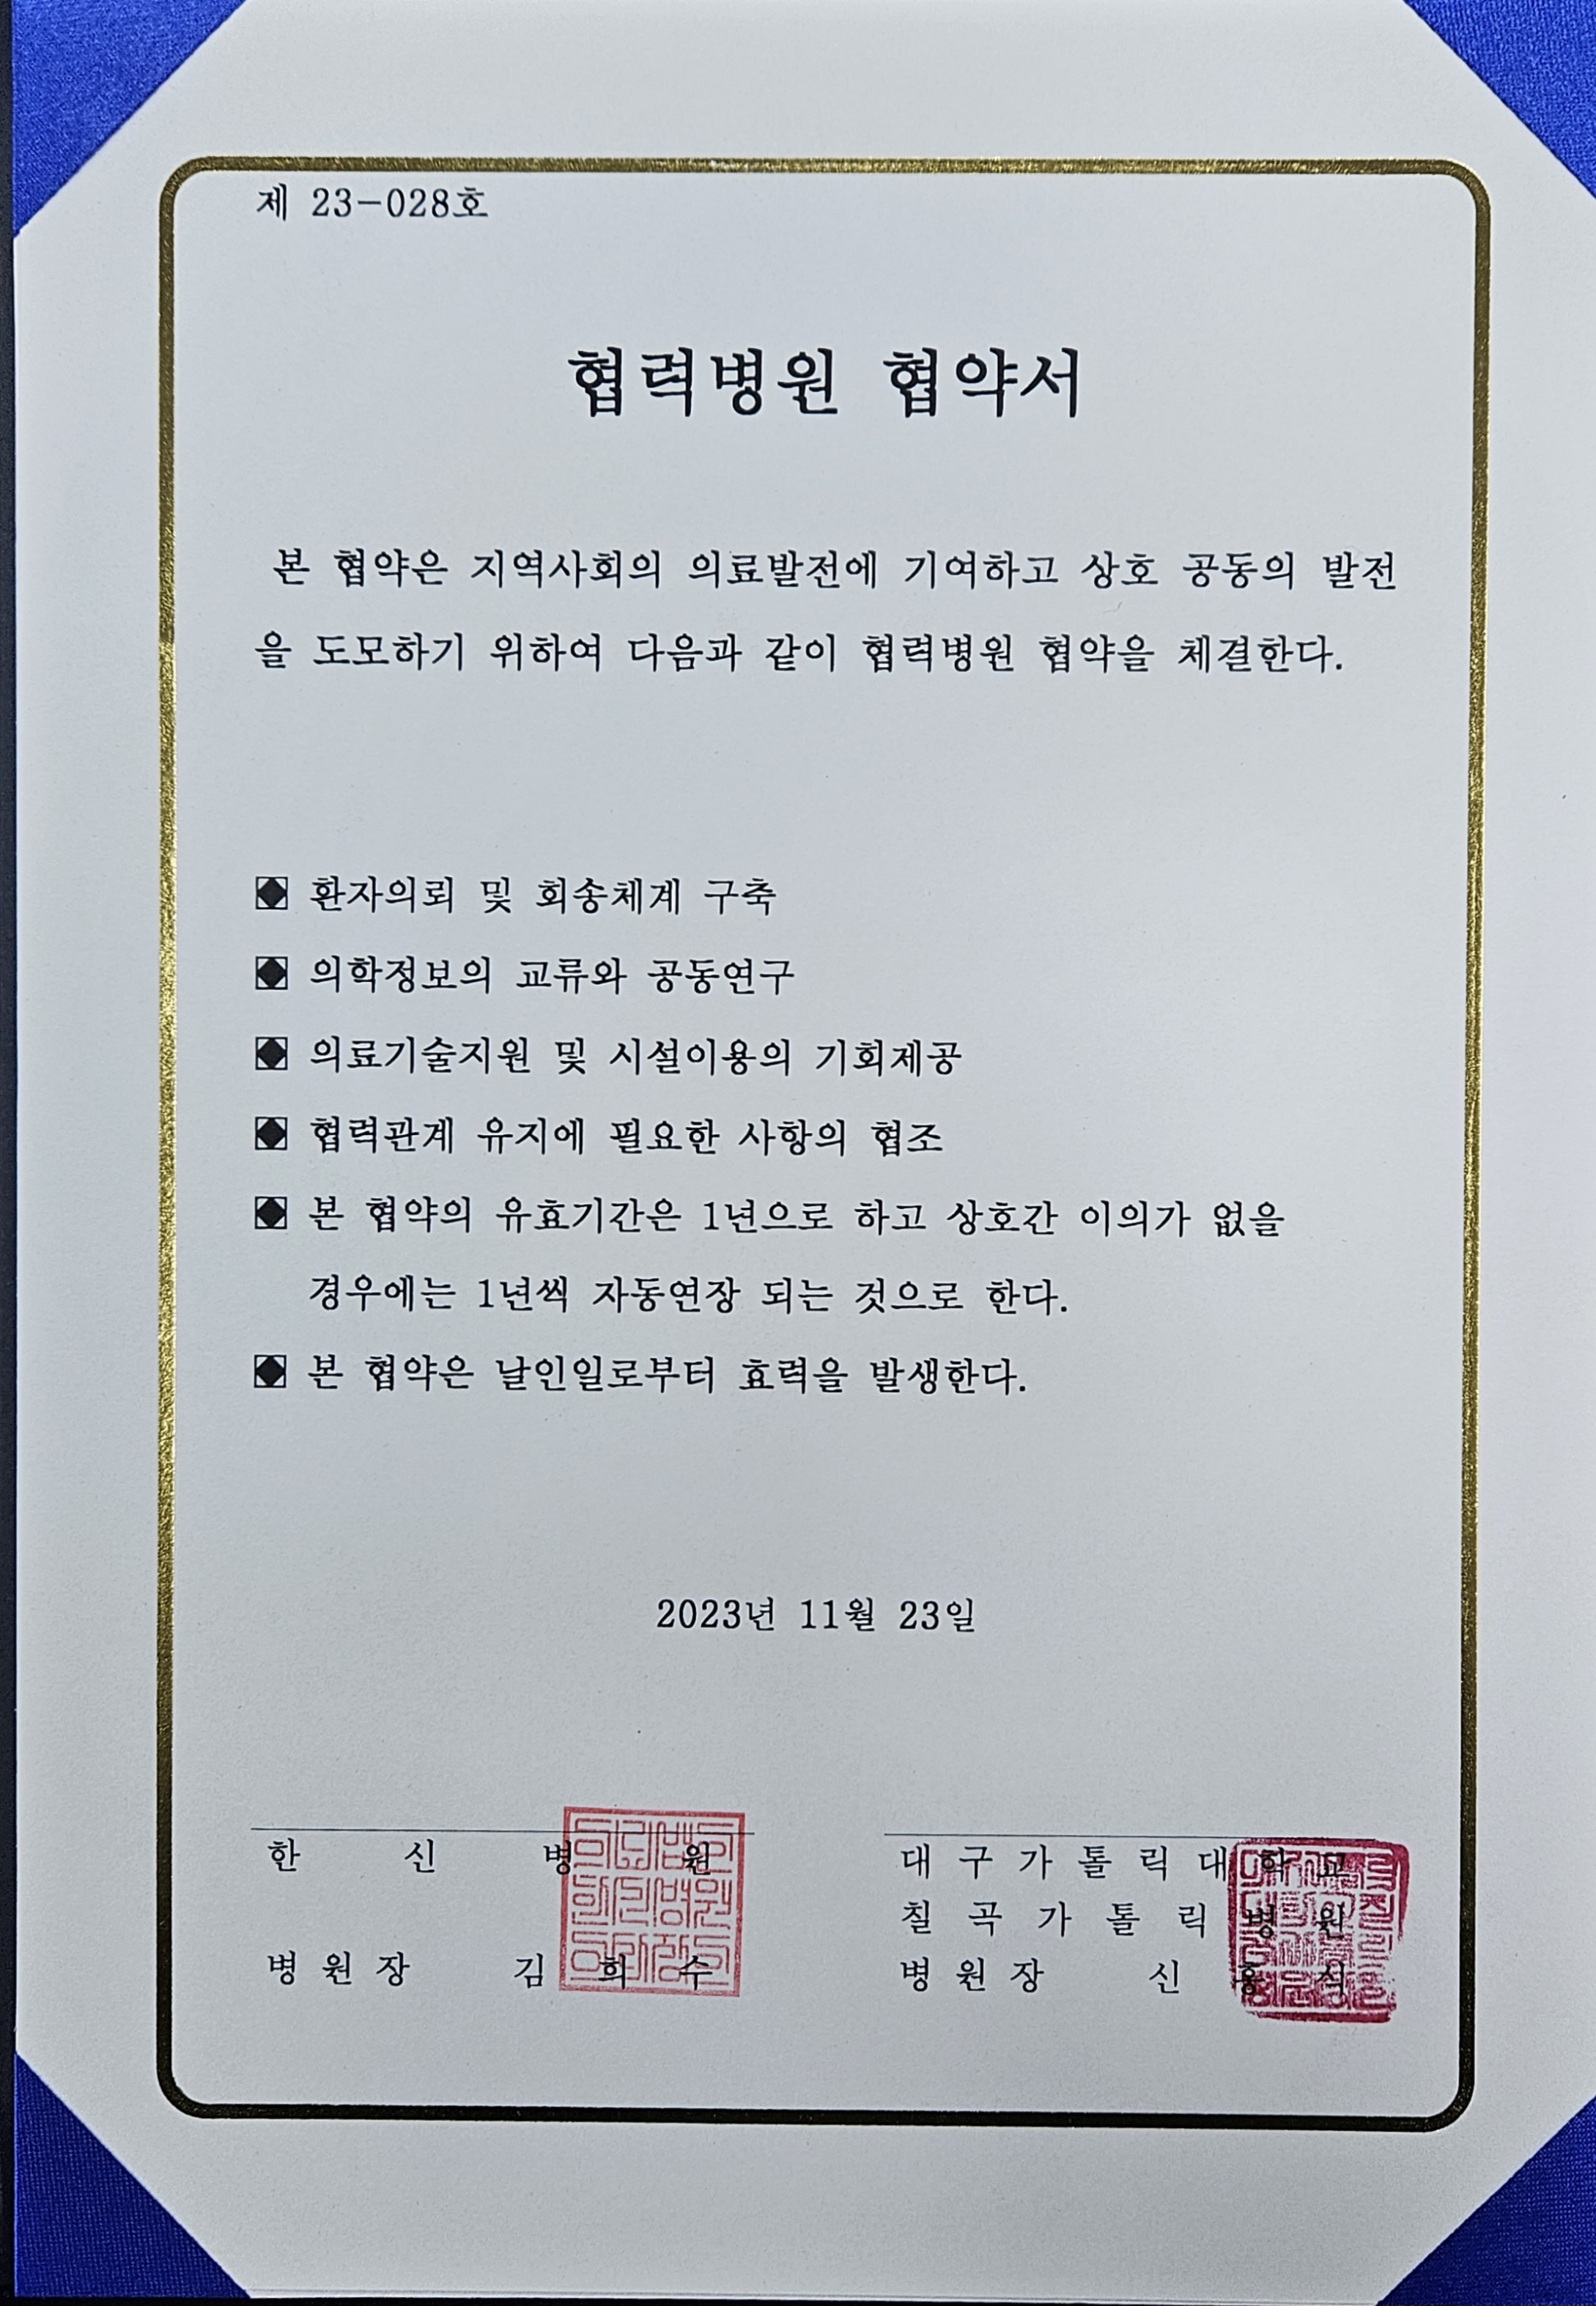 제 23-028호
협력병원 협약서
본 협약은 지역사회의 의료발전에 기여하고 상호 공동의 발전
을 도모하기 위하여 다음과 같이 협력병원 협약을 체결한다.
환자의뢰 및 회송체계 구축
의학정보의 교류와 공동연구
의료기술지원 및 시설이용의 기회제공
협력관계 유지에 필요한 사항의 협조
본 협약의 유효기간은 1년으로 하고 상호간 이의가 없을
경우에는 1년씩 자동연장 되는 것으로 한다.
본 협약은 날인일로부터 효력을 발생한다.
2023년 11월 23일
한 신 병 원
병 원 장 김 희 수
대 구 가 톨 릭 대 학 교
칠 곡 가 톨 릭 병 원
병 원 장 신 홍 식